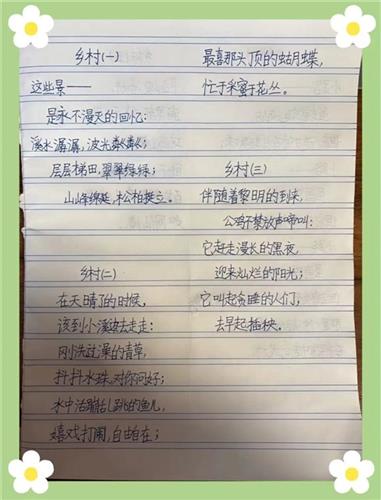 乡村(一)
这些景——
是永不漫灭的回忆:
溪水潺潺,波光粼粼;
层层梯田,翠翠绿绿;
山峰绵延,松柏挺立。
乡村(二)
在天晴了的时候,
该到小溪边去走走:
刚洗过澡的青草,
抖抖水珠,对你问好;
水中活蹦乱跳的鱼儿,
嬉戏打闹,自由自在;
最喜那头顶的蝴蝶,
忙于采蜜于花丛。
乡村(三)
伴随着黎明的到来,
公鸡不禁放声啼叫:
它赶走漫长的黑夜,
迎来灿烂的阳光;
它叫起贪睡的人们,
去早起插秧。